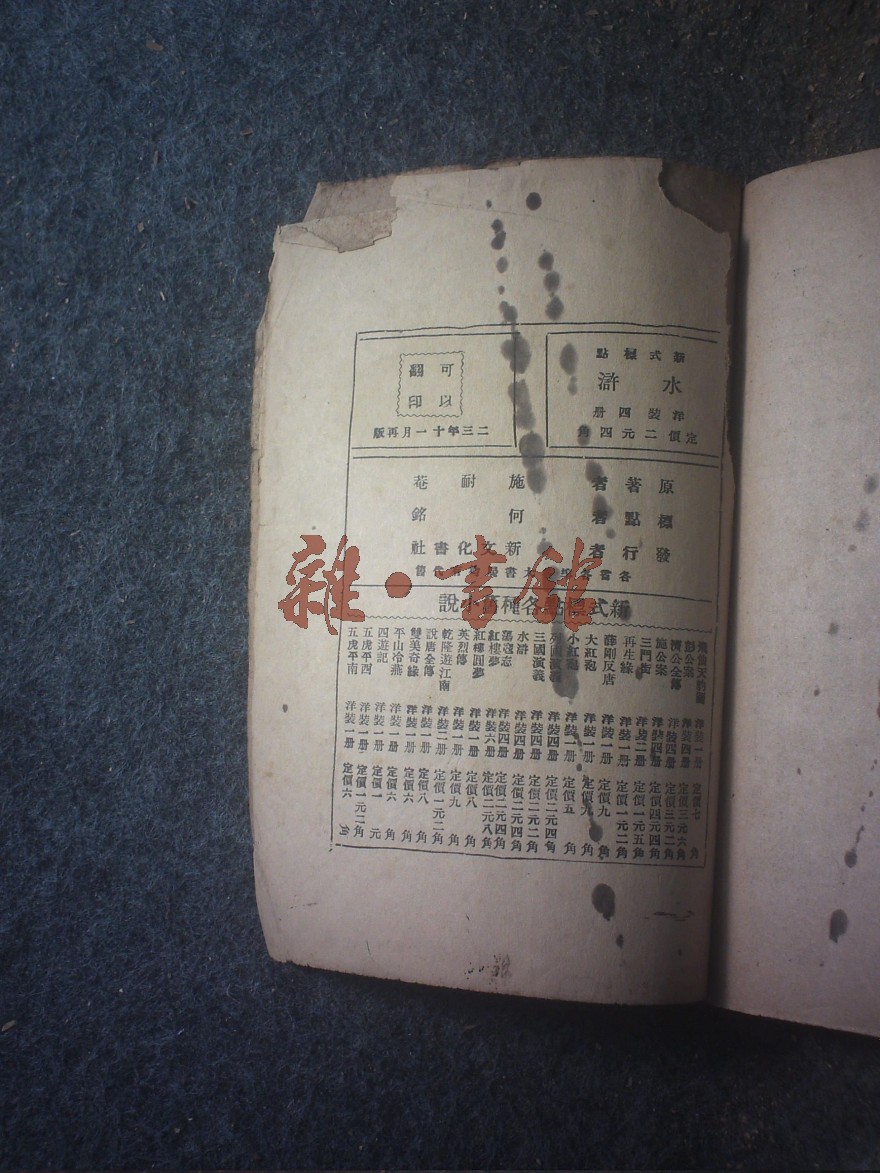 新式標點
水滸
洋裝四册
定價二元四角
可以
翻印
二三年十一月再版
原著者 施耐菴
標點者 何銘
發行者 新文化書社
各省各埠大書局均有代售
新式標點各種舊小說
彭公案 洋裝四册 定價三元六角
濟公全傳 洋裝四册 定價三元二角
施公案 洋裝四册 定價四元四角
三門街 洋裝二册 定價一元五角
再生緣 洋裝一册 定價一元二角
薛剛反唐 洋裝一册 定價九角
大紅袍 洋裝一册 定價九角
小紅袍 洋裝一册 定價五角
列國演義 洋裝四册 定價二元四角
三國演義 洋裝四册 定價二元二角
水滸 洋裝四册 定價二元四角
蕩寇志 洋裝四册 定價二元四角
紅樓夢 洋裝六册 定價二元八角
紅樓圓夢 洋裝一册 定價八角
英烈傳 洋裝一册 定價九角
乾隆遊江南 洋裝二册 定價一元二角
說唐全傳 洋裝一册 定價八角
雙美奇緣 洋裝一册 定價六角
平山冷燕 洋裝一册 定價六角
四遊記 洋裝一册 定價一元
五虎平西 洋裝一册 定價一元二角
五虎平南 洋裝一册 定價六角
雜·書館